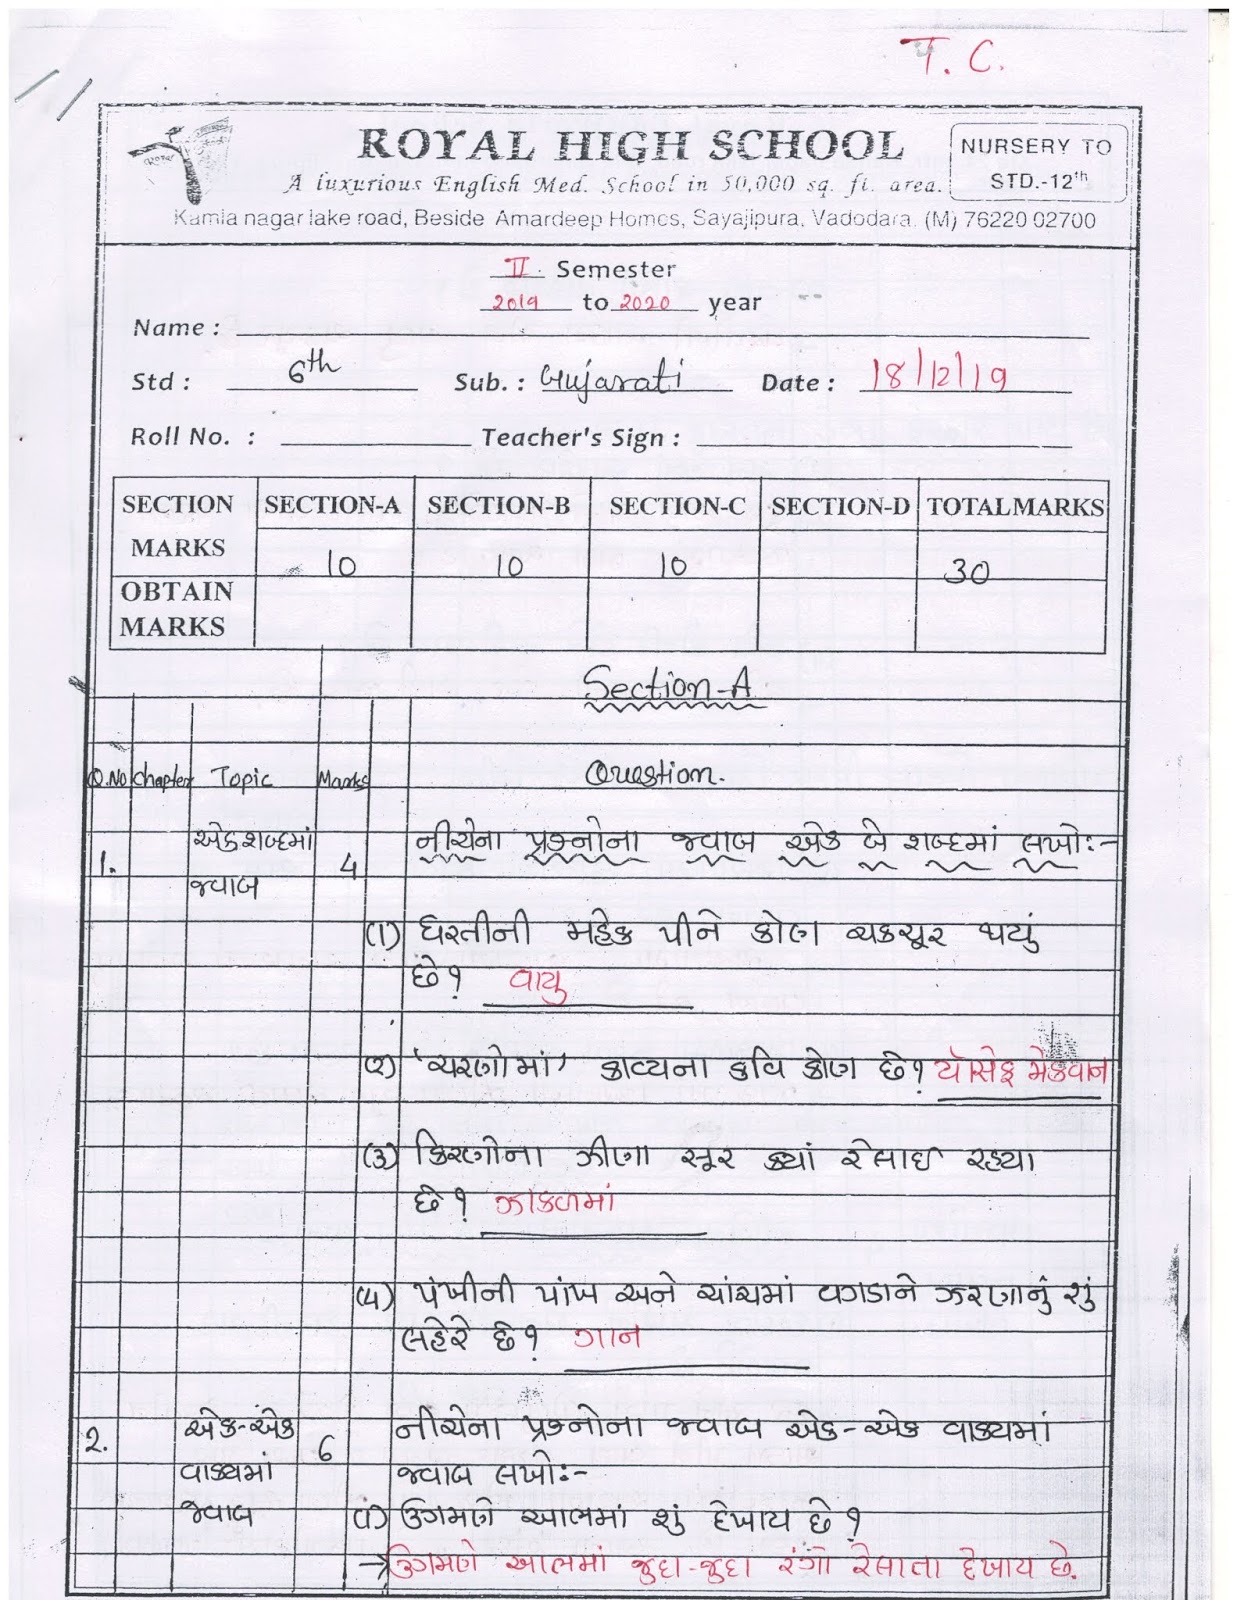 T. C.
ROYAL HIGH SCHOOL
NURSERY TO
STD.-12th
A luxurious English Med. School in 50,000 sq. ft. area.
Kamla nagar lake road, Beside Amardeep Homes, Sayajipura, Vadodara. (M) 76220 02700
II. Semester
2019 to 2020 year
Name :
Std : 6th Sub. : Gujarati Date : 18/12/19
Roll No. : Teacher's Sign :
SECTION MARKS SECTION-A SECTION-B SECTION-C SECTION-D TOTAL MARKS
10 10 10 30
OBTAIN MARKS
Section-A
Q.No Chapter Topic Marks Question.
1. એક શબ્દમાં 4 નીચેના પ્રશ્નોના જવાબ એક બે શબ્દમાં લખો:-
જવાબ
(૧) ધરતીની મહેક પીને કોણ ચકચૂર થયું
છે? વાયુ
(૨) 'ચરણોમાં' કાવ્યના કવિ કોણ છે? યૉસેફ મેકવાન
(૩) કિરણોના ઝીણા સૂર ક્યાં રેલાઈ રહ્યા
છે? ઝાકળમાં
(૪) પંખીની પાંખ અને ચાંચમાં વગડાને ઝરણાનું શું
લહેરે છે? ગાન
2. એક-એક 6 નીચેના પ્રશ્નોના જવાબ એક-એક વાક્યમાં
વાક્યમાં જવાબ લખો:-
જવાબ (૧) ઉગમણે આભમાં શું દેખાય છે?
→ ઉગમણે આભમાં જુદા-જુદા રંગો રેલાતા દેખાય છે.